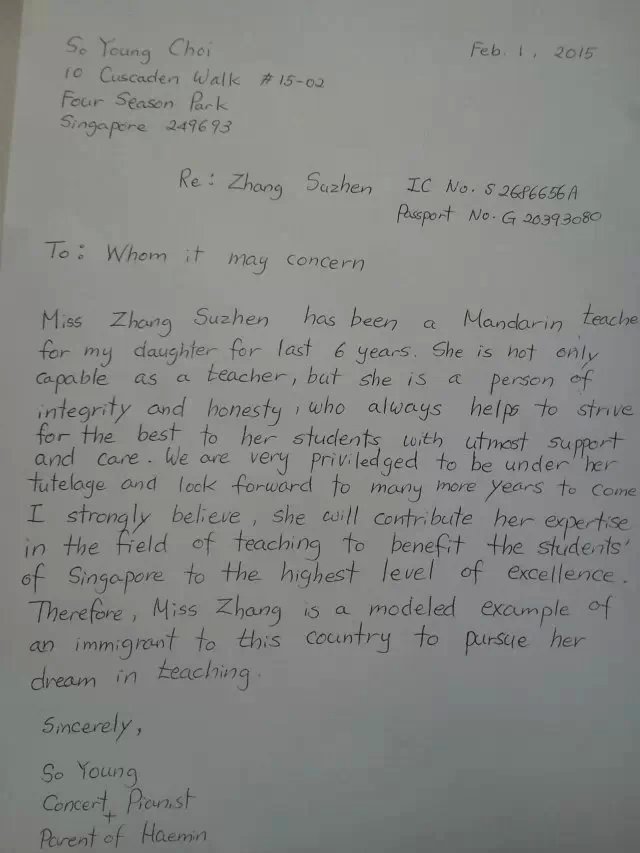 So Young Choi
Feb. 1, 2015
10 Cuscaden Walk #15-02
Four Season Park
Singapore 249693
Re: Zhang Suzhen IC No. S2686656A
Passport No. G20393080
To: Whom it may concern
Miss Zhang Suzhen has been a Mandarin teache
for my daughter for last 6 years. She is not only
capable as a teacher, but she is a person of
integrity and honesty, who always helps to strive
for the best to her students with utmost support
and care. We are very priviledged to be under her
tutelage and look forward to many more years to come
I strongly believe, she will contribute her expertise
in the field of teaching to benefit the students'
of Singapore to the highest level of excellence.
Therefore, Miss Zhang is a modeled example of
an immigrant to this country to pursue her
dream in teaching.
Sincerely,
So Young
Concert Pianist
+
Parent of Haemin